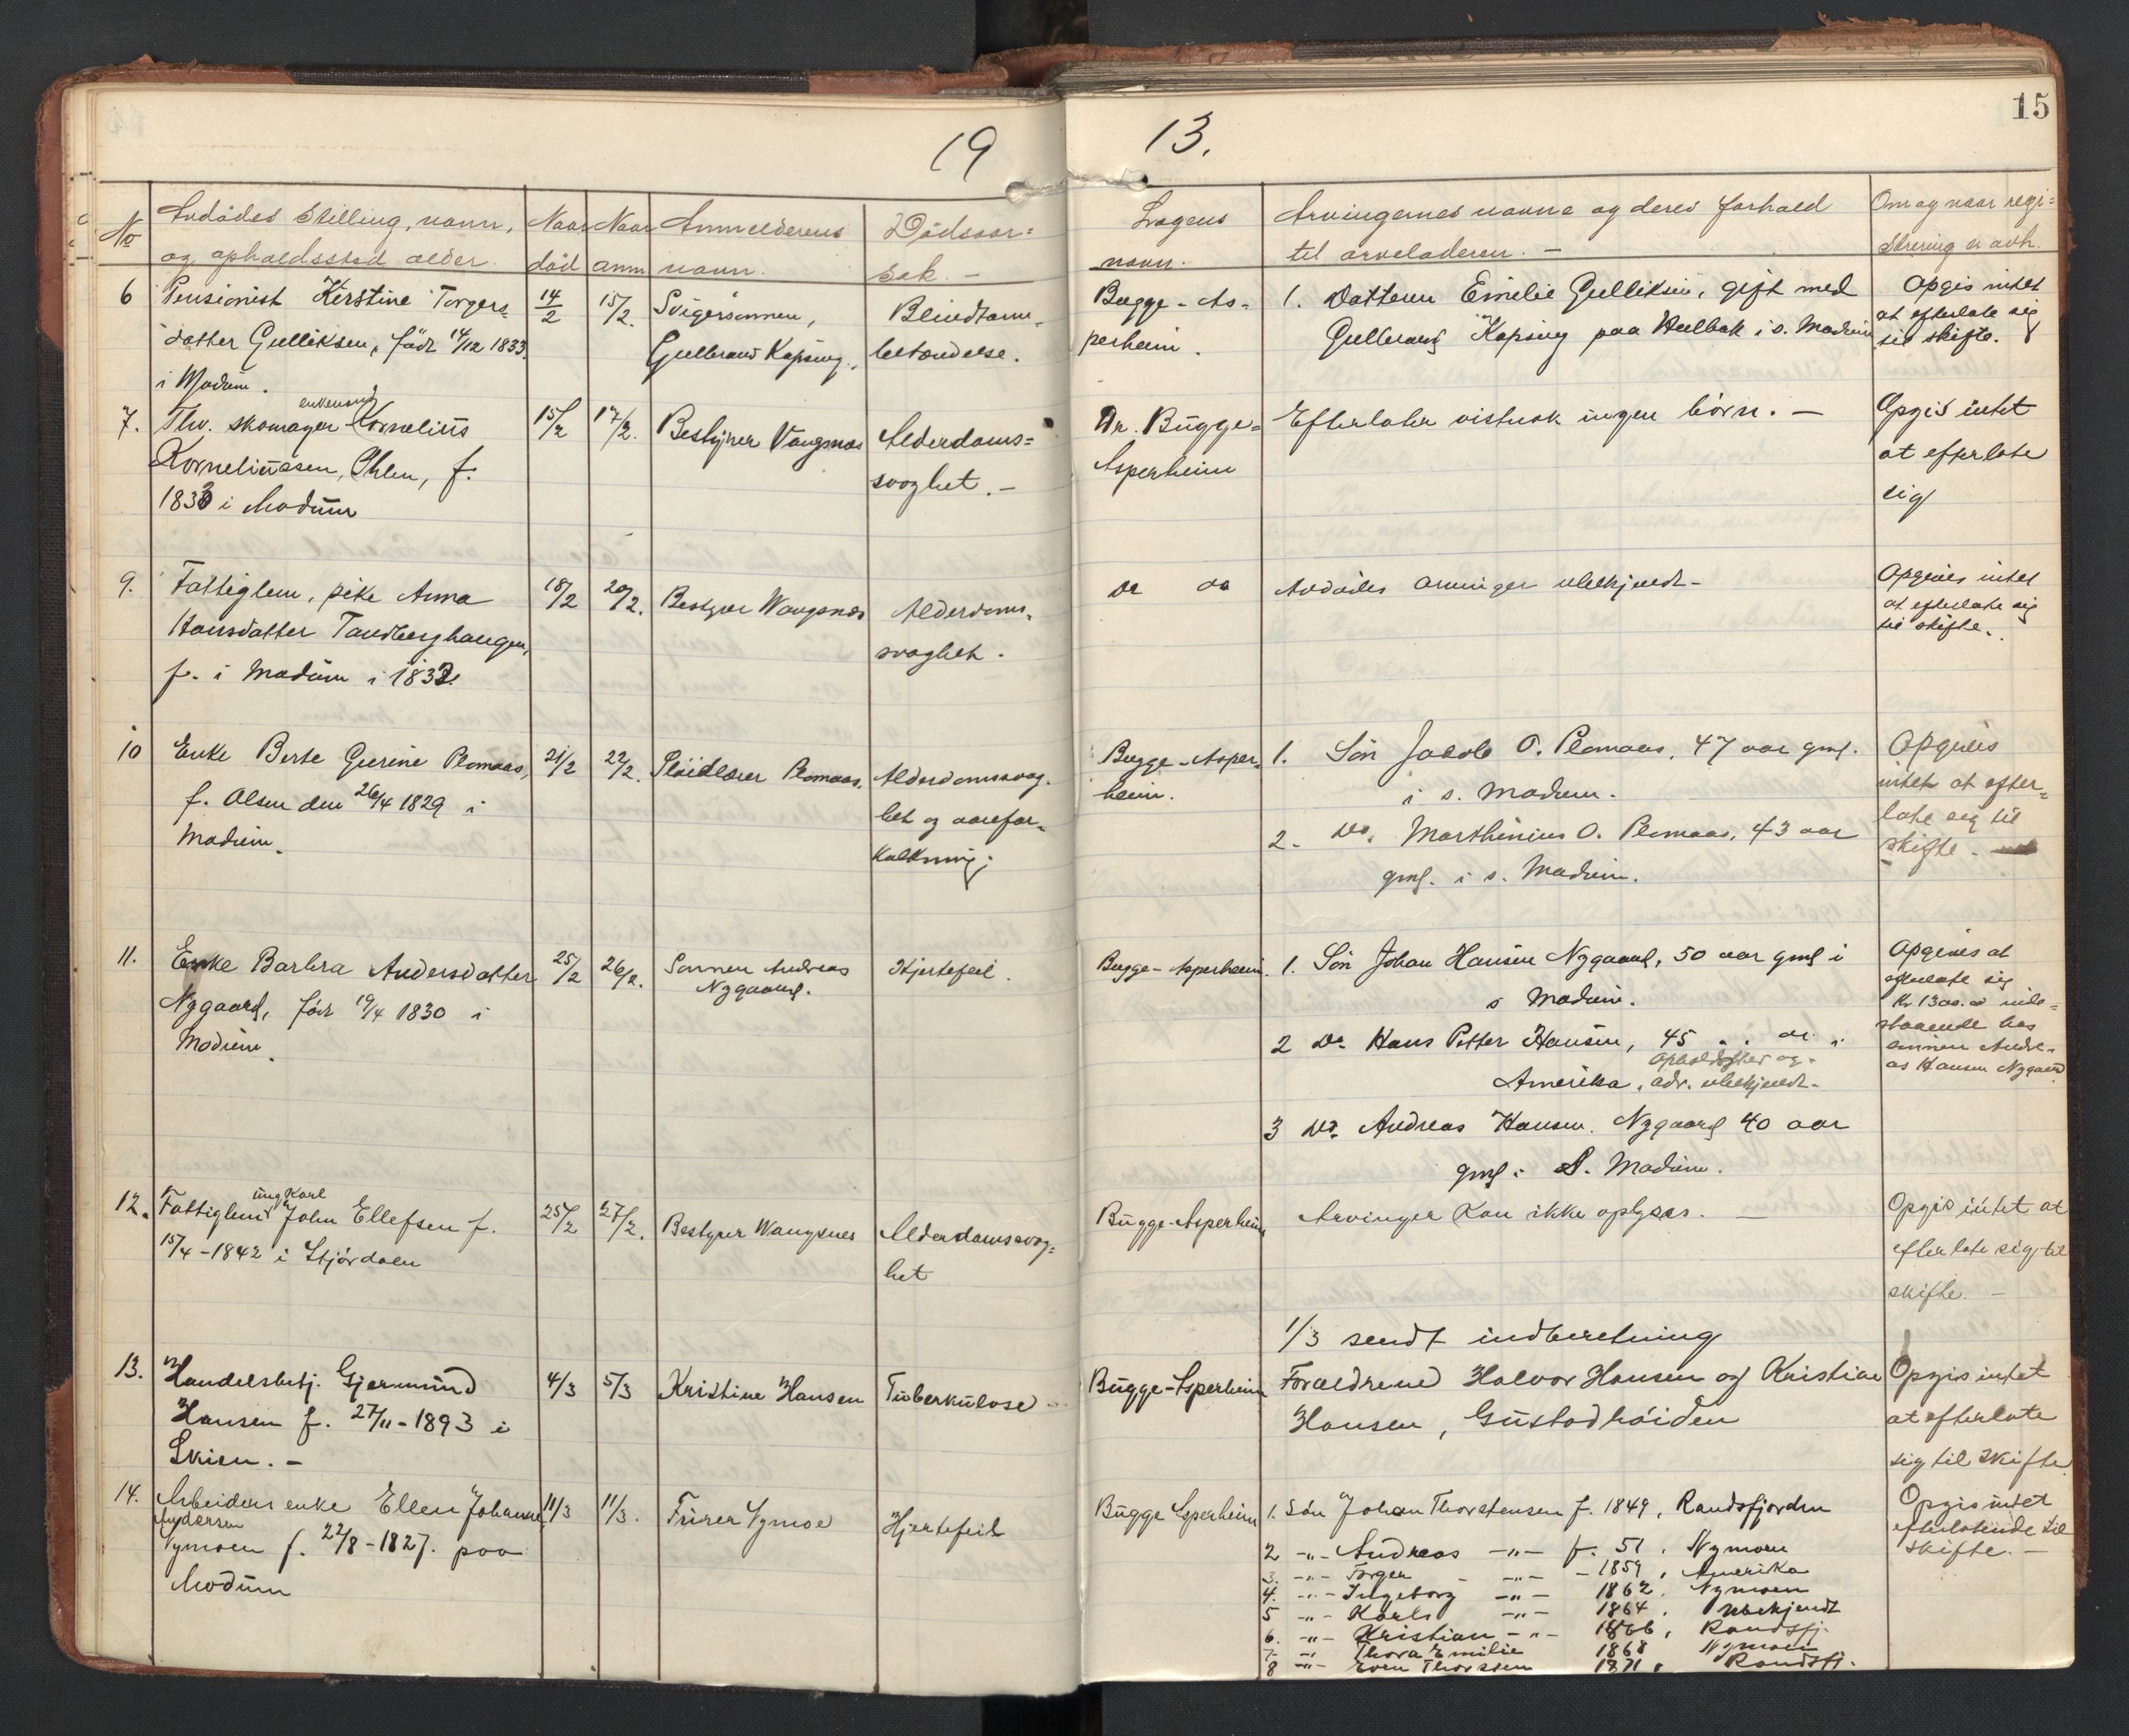 19
13.
15
No
Avdødes stilling, navn,
og opholdssted alder.
Naar
död
Naar
anm
Anmelderens
navn.
Dödsaar=
sak. -
Lægens
navn.
Arvingernes navne og deres forhold
til arveladeren. -
Om og naar regi=
strering er avh.
6
Pensionist Kirstine Torgers=
datter Gulliksen, född 14/12 1833
i Modum.
14/2
15/2.
Svigersønnen,
Gulbrand Kopseng.
Blindtarm-
betændelse.
Bugge-As-
perheim.
1. Datteren Emelie Gulliksen, gift med
Gulbrand Kopseng paa Hulbak i s. Modum
Opgis intet
at efterlate sig
til skifte.
7.
enkemand
Thv. skomager Kornelius
Korneliussen, Ihlen, f.
1830 i Modum
15/2
17/2.
Bestyrer Vangsnes
Alderdoms=
svaghet. -
Dr. Bugge=
Asperheim
Efterlater vistnok ingen börn. -
Opgis intet
at efterlate
sig
9.
Fattiglem, pike Anna
Hansdatter Tandberghaugen,
f. i Modum i 1832
18/2
20/2.
Bestyrer Wangsnes
Alderdoms-
svaghet.
Do do
Avdödes arvinger ubekjendt-
Opgives intet
at efterlate sig
til skifte.
10
Enke Berte Gurine Plomaas,
f. Olsen den 26/4 1829 i
Modum.
21/2
22/2.
Pløielærer Plomaas.
Alderdomssvag-
het og aarefor-
kalkning.
Bugge-Asper-
heim.
1. Sön Jakob O. Plomaas, 47 aar gml.
i s. Modum.
2. Do. Marthinius O. Plomaas, 43 aar
gml. i s. Modum.
Opgives
intet at efter=
late sig til
skifte.
11.
Enke Barbra Andersdatter
Nygaard, född 19/4 1830 i
Modum.
25/2
26/2.
Sønnen Andreas
Nygaard.
Hjertefeil.
Bugge-Asperheim.
1. Sön Johan Hansen Nygaard, 50 aar gml i
s Modum.
2 Do. Hans Petter Hansen, 45 " " do i
Opholdssted og
Amerika, adr. ubekjendt-
3 Do. Andreas Hansen Nygaard 40 aar
gml i S. Modum.
Opgives at
efterlate sig
Kr. 1300.00 inde=
staaende hos
sønnen Andre-
as Hansen Nygaard
12.
ungkarl
Fattiglem John Ellefsen f.
15/4-1842 i Stjördalen
25/2
27/2.
Bestyrer Wangsnes
Alderdomssvag=
het
Bugge-Asperheim
Arvinger kan ikke oplyses. -
1/3 sendt indberetning
Opgis intet at
efterlate sig til
skifte. -
13.
Handelsbetj. Gjermund
Hansen f. 27/11-1893 i
Skien. -
4/3
5/3
Kristine Hansen
Tuberkulose
Bugge-Asperheim
Foræeldrene Halvor Hansen og Kristine
Hansen, Gustadhöiden
Opgis intet
at efterlate
sig til skifte
14.
Arbeiders enke Ellen Johanne
Andersen
Nymoen f. 22/8-1827. paa
Modum
11/3
11/3.
Furer Nymoe
Hjertefeil
Bugge Asperheim
1. Sön Johan Thorstensen f. 1849, Randsfjorden
2 -"- Andreas -"- f. 51, Nymoen
3. -"- Torger -"- - 1859, Amerika
4. -"- Ingeborg -"- 1862, Nymoen
5 -"- Karls -"- 1864, Ubekjendt
6. -"- Kristian -"- 1866, Randsfj.
7. -"- Thora Emilie 1868 Nymoen
8 -"- Even Thorssen 1871, Randsfj.
Opgis intet
efterlatende til
skifte. -